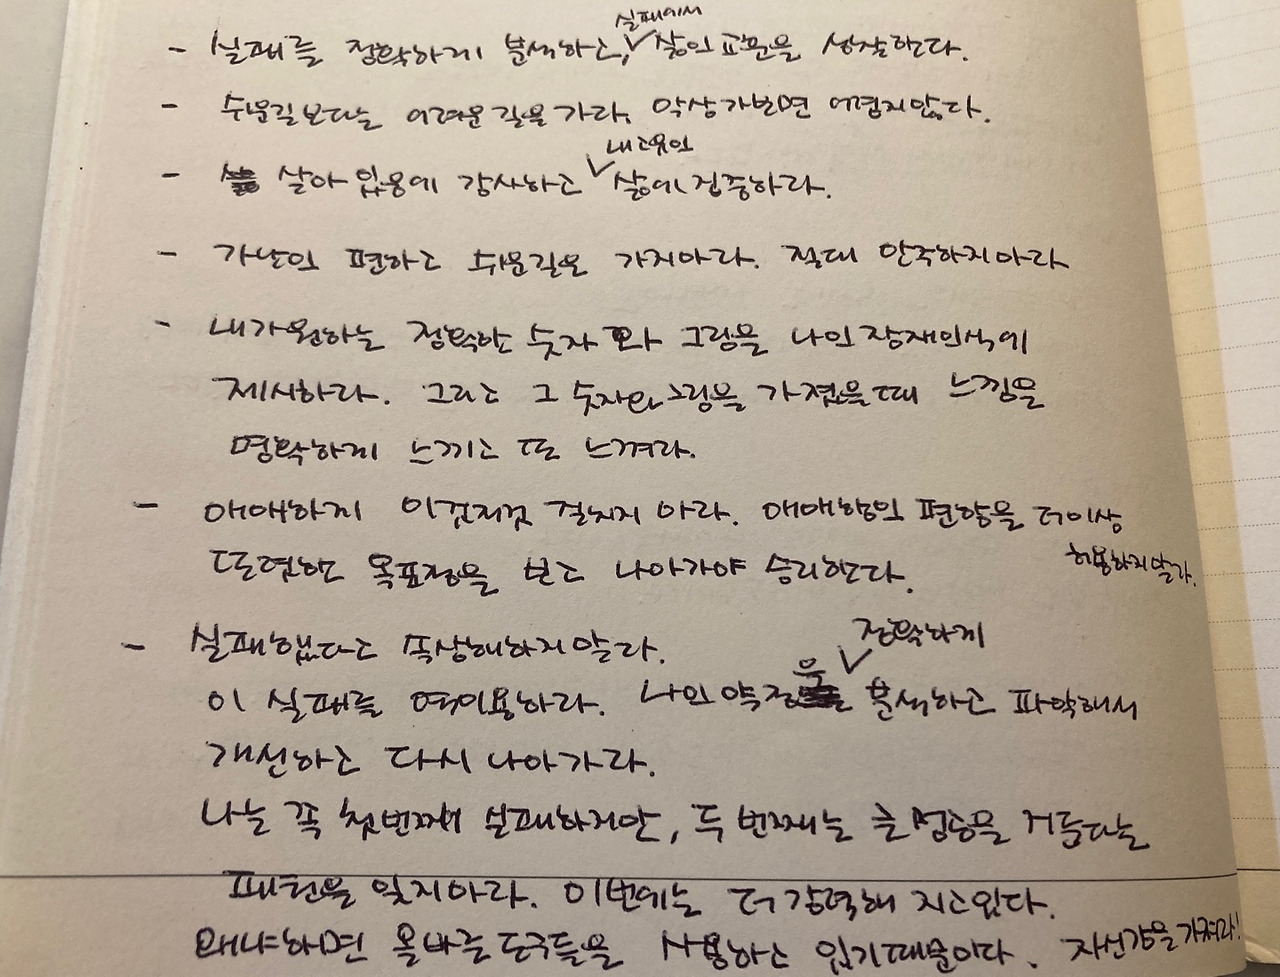 - 실패를 정확하게 분석하고, 실패에서 삶의 교훈을 성찰한다.
- 쉬운길보다는 어려운 길을 가라. 막상 가보면 어렵지않다.
- 살아 있음에 감사하고 내 고유의 삶에 집중하라.
- 가난의 편하고 쉬운길은 가지마라. 절대 안주하지마라
- 내가원하는 정확한 숫자와 그림을 나의 잠재의식에
제시하라. 그리고 그 숫자와 그림을 가졌을때 느낌을
명확하게 느끼고 또 느껴라.
- 애매하게 이것저것 걸치지 마라. 애매함의 편향을 더이상
허용하지말라.
또렷한 목표점을 보고 나아가야 승리한다.
- 실패했다고 속상해하지말라.
이 실패를 역이용하라. 나의 약점을 정확하게 분석하고 파악해서
개선하고 다시 나아가라.
나는 꼭 첫번째에 실패하지만, 두 번째는 큰 성공을 거둔다는
패턴을 잊지마라. 이번에는 더 강력해 지고있다.
왜냐하면 올바른 도구들을 사용하고 있기 때문이다. 자신감을 가져라!